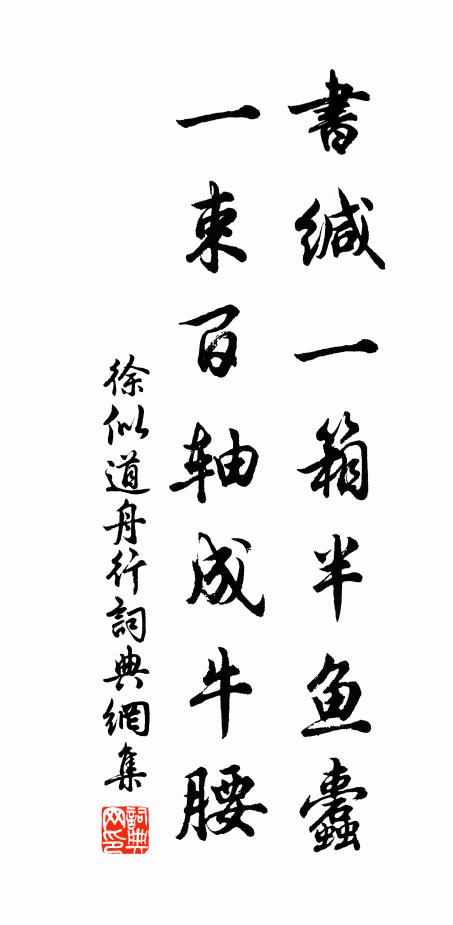 書缄一箱半鱼蠹
一束百轴成牛腰
徐似道舟行詞典網集
詞典网印